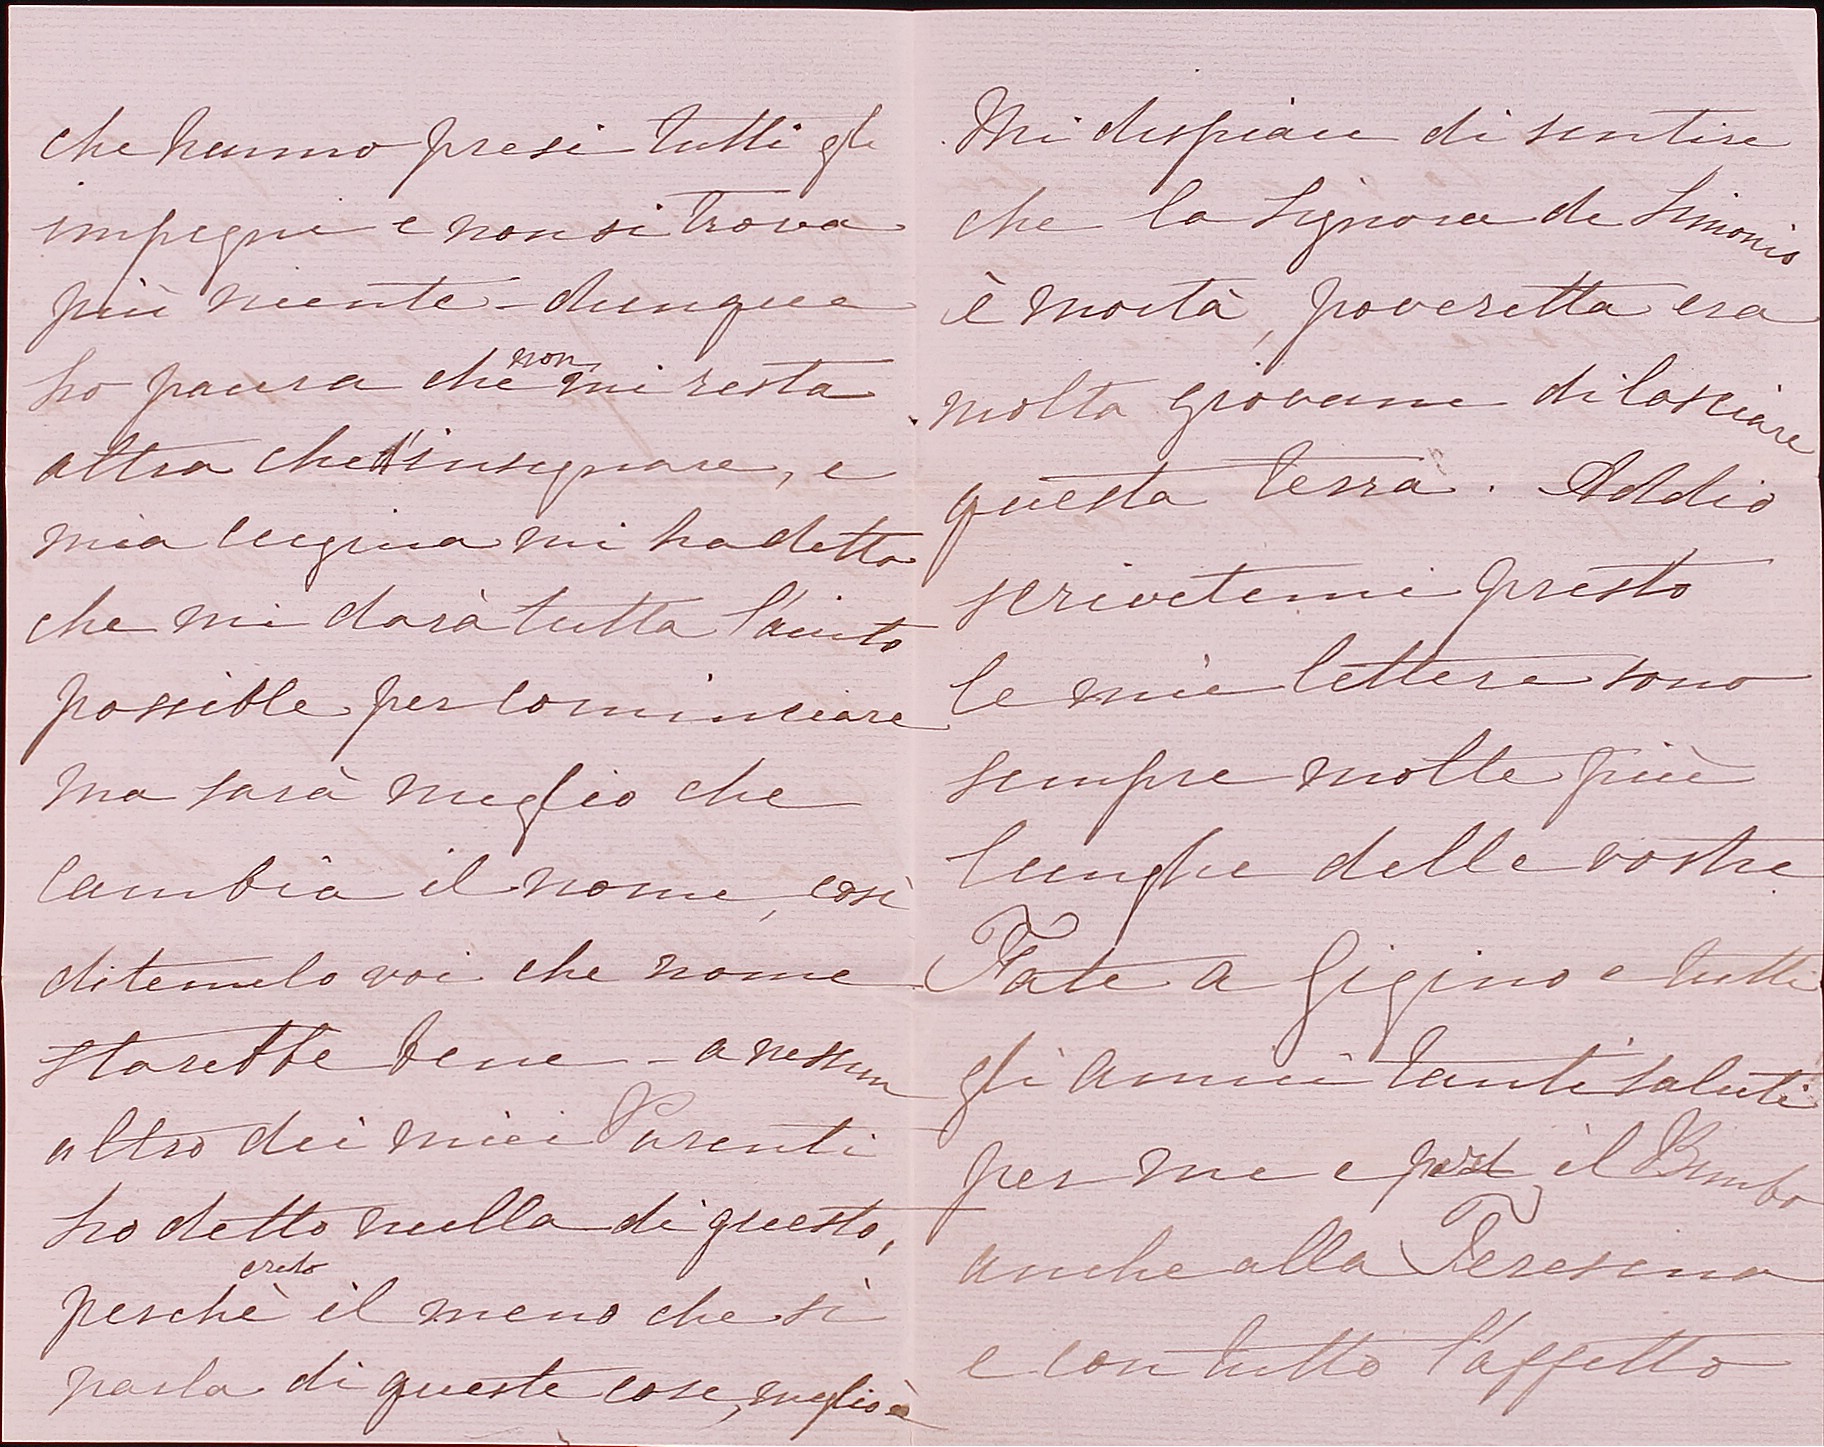 che hanno presi tutti gli
impegni e non si trova
più niente – dunque
ho paura che non mi resta
altra che l'insegnare, e
mia cugina mi ha detto
che mi darà tutta l'aiuto
possible per cominciare
ma sarà meglio che
cambia il nome, così
ditemelo voi che nome
starebbe bene – a nessun
altro dei miei Parenti
ho detto nulla di questo,
perchè credo il meno che si
parla di queste cose, meglio è
Mi dispiace di sentire
che la Signora de Simonis
è morta, poveretta era
molto giovane di lasciare
questa terra. Addio
scrivetemi presto
le mie lettere sono
sempre molte più
lunghe delle vostre
Fate a Gigino e tutti
gli amici tanti saluti
per me e per il Bimbo
anche alla Teresina
e con tutto l'affetto